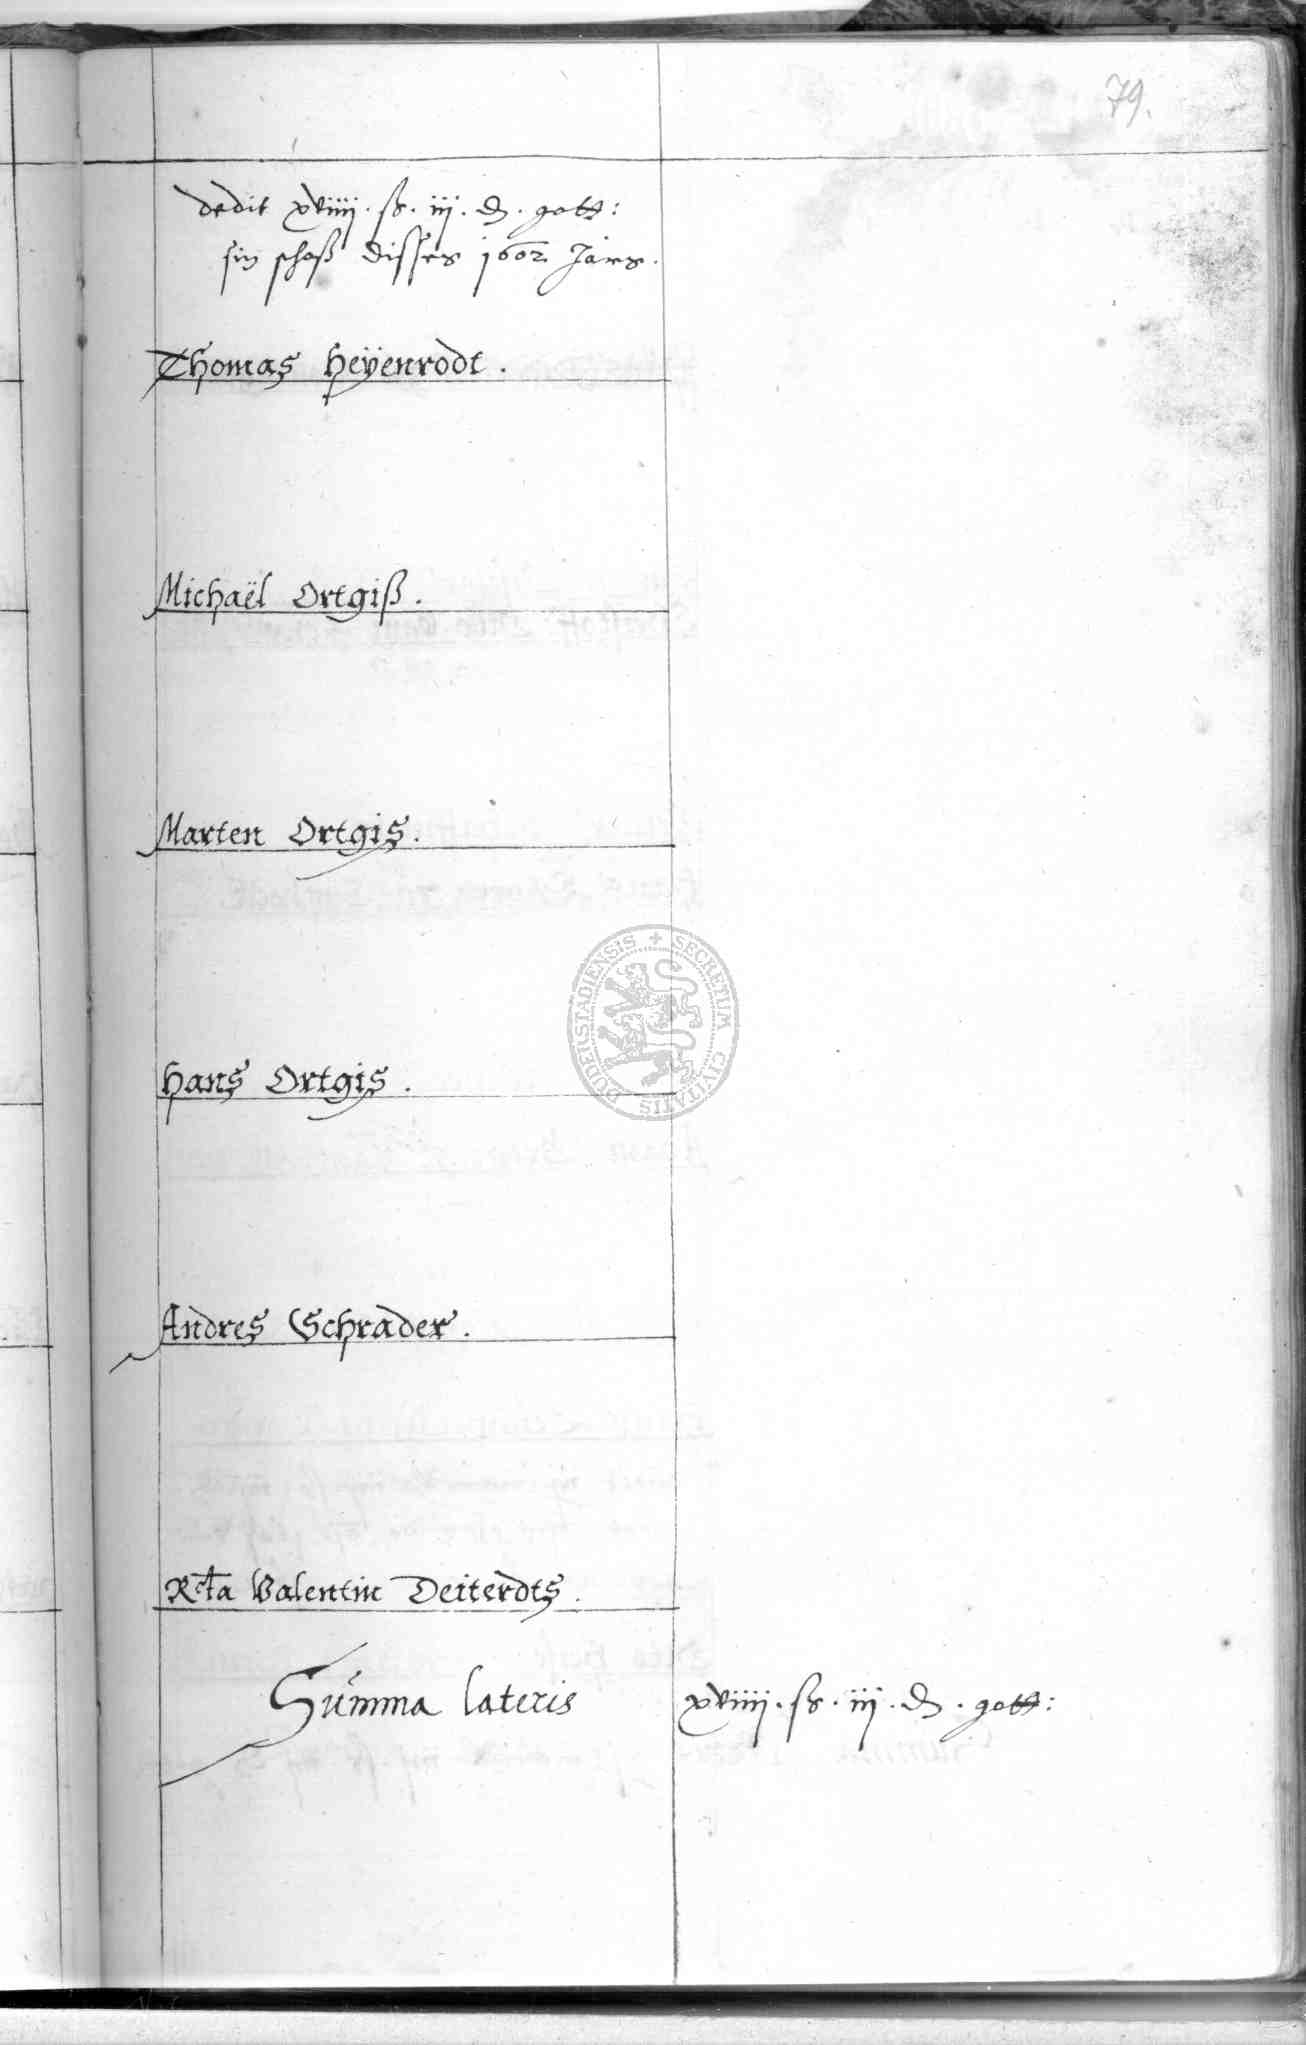 79.
dedit xviiii. ß. iij. d. gott:
sin schoß disses 1602 Jars.
Thomas Heÿenrodt.
Michaël Ortgiß.
Marten Ortgis.
Hans Ortgis.
Andres Schrader.
Rcta Valentin Deiterdts.
Summa lateris xviiii. ß. iij. d. gott:
SECRETUM CIVITATIS DUDERSTADIENSIS